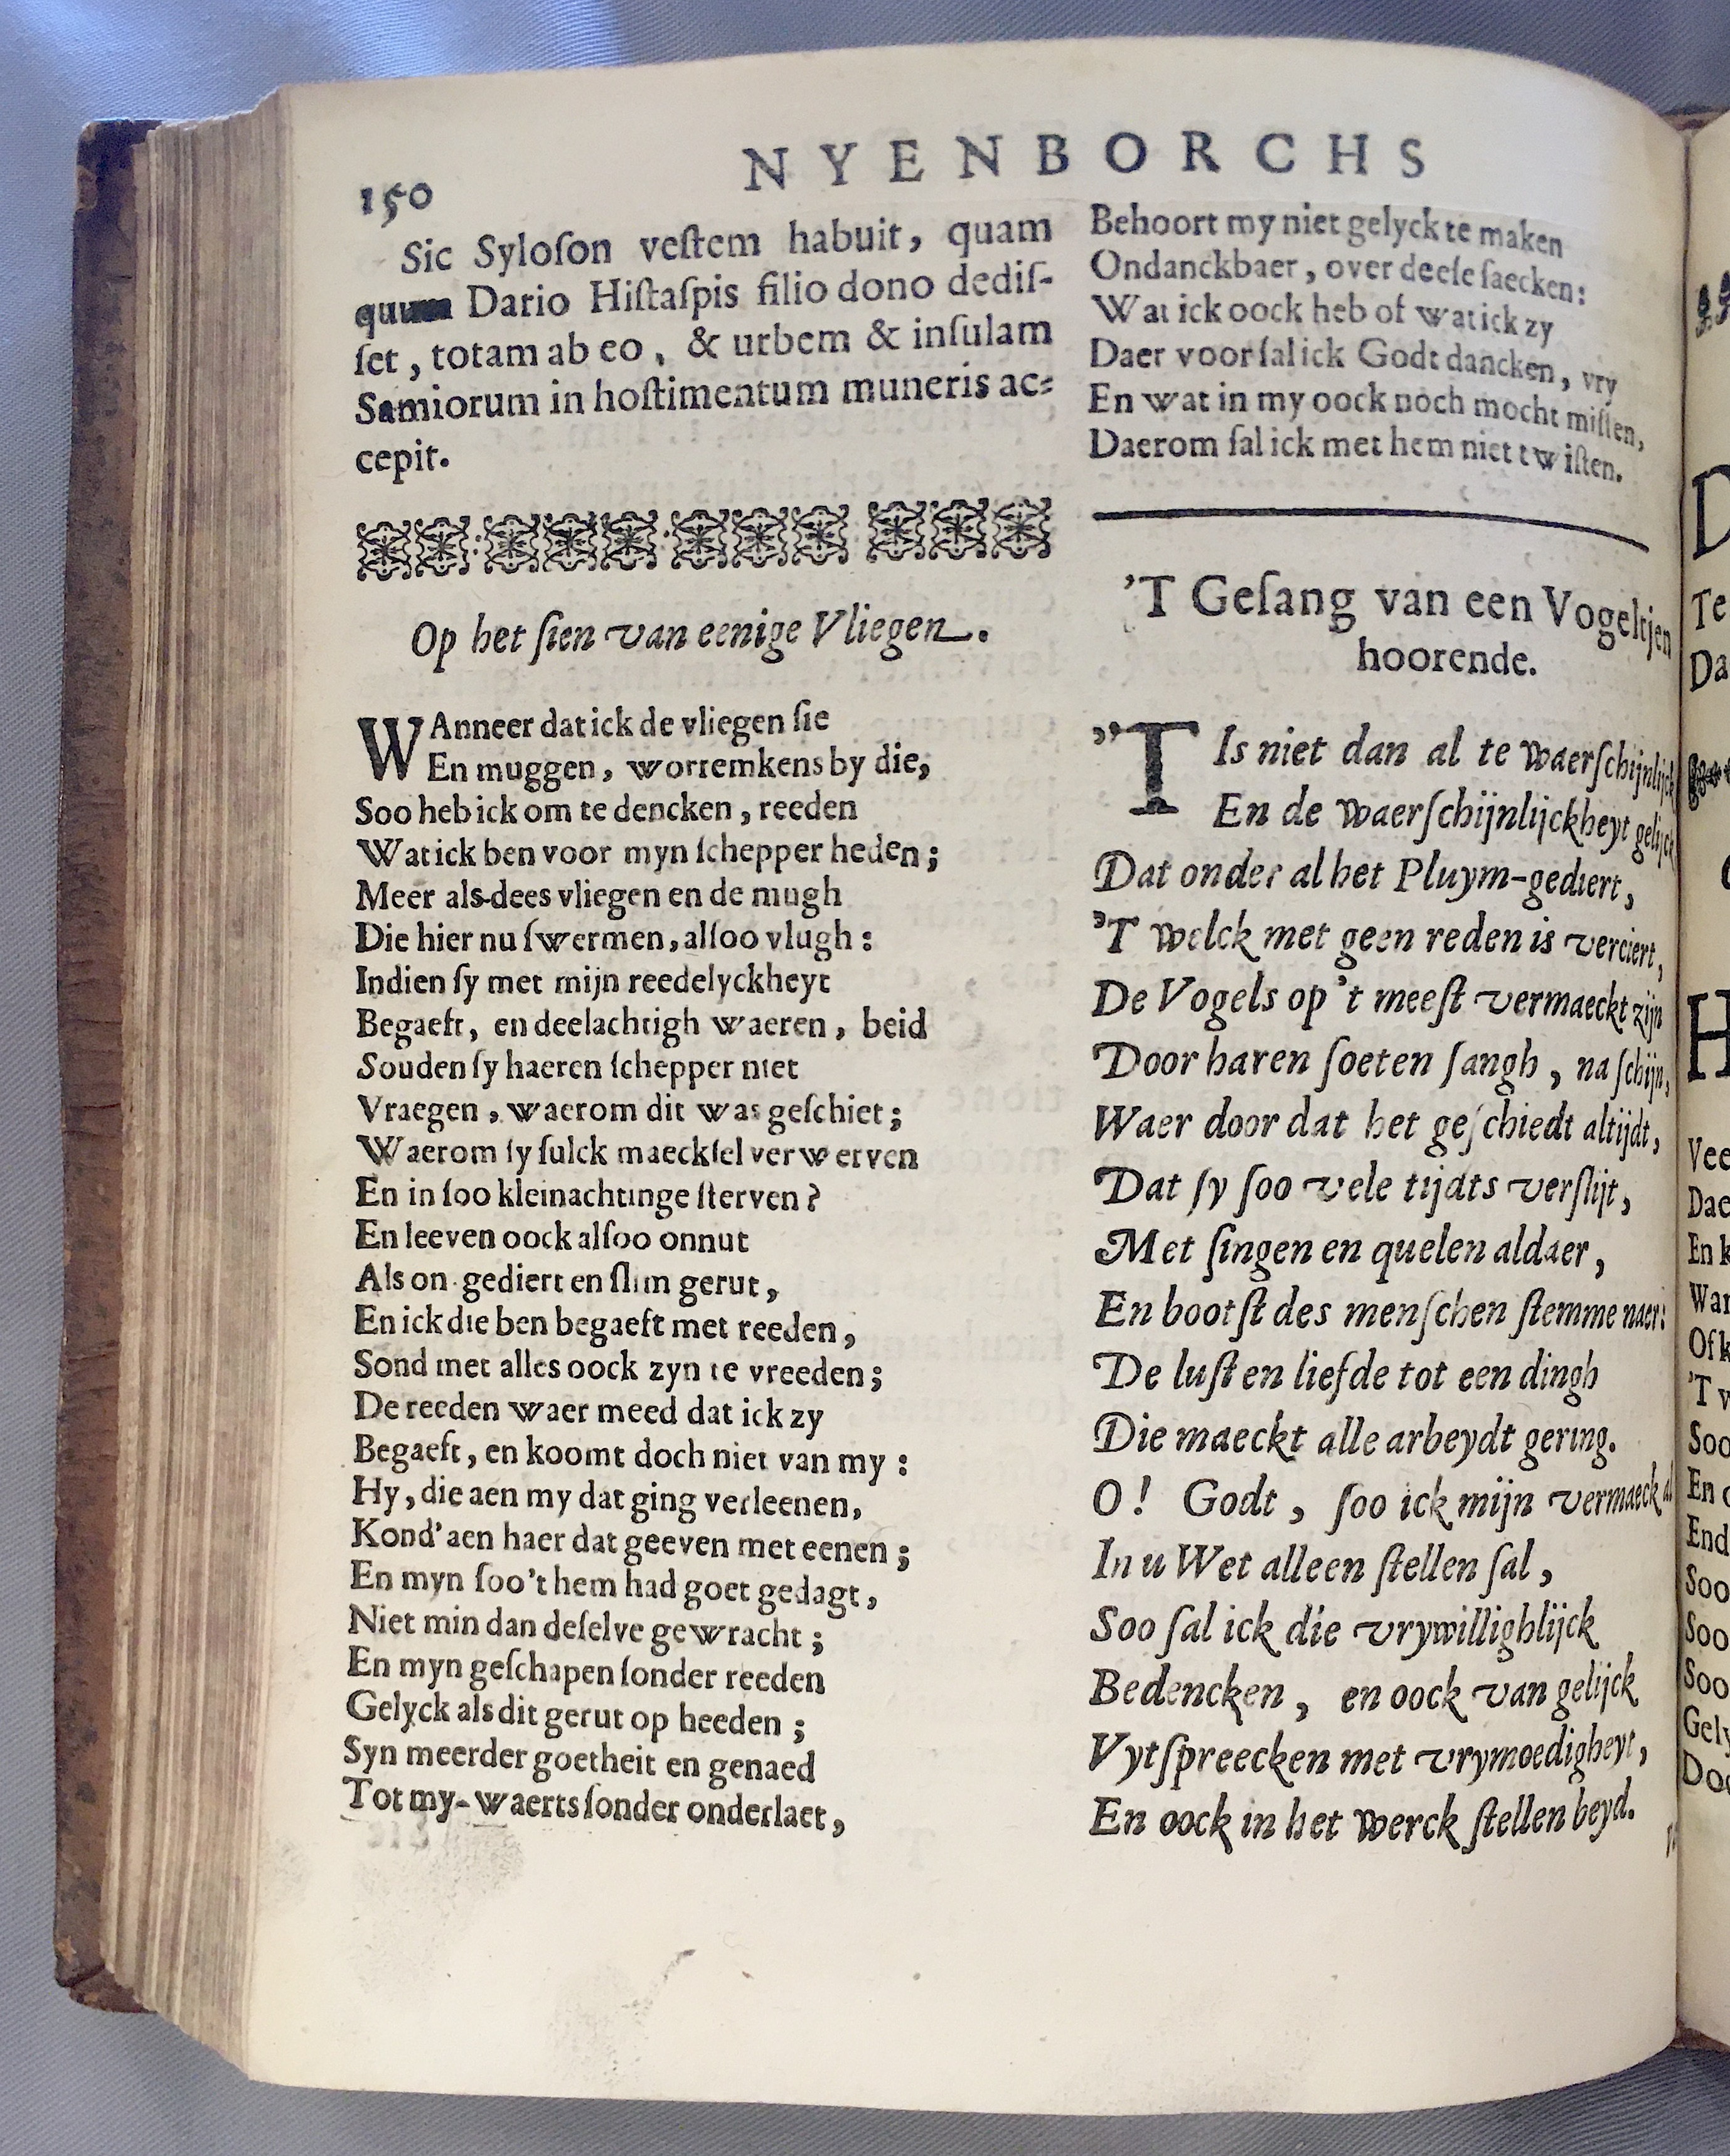 150
NYENBORCHS
Sic Syloſon veſtem habuit, quam
Dario Hiſtaſpis filio dono dediſ-
ſet, totam ab eo, & urbem & inſulam
Samiorum in hoſtimentum muneris ac-
cepit.
Op het ſien van eenige Vliegen.
WAnneer dat ick de vliegen ſie
En muggen, worremkens by die,
Soo heb ick om te dencken, reeden
Wat ick ben voor myn ſchepper heden;
Meer als-dees vliegen en de mugh
Die hier nu ſwermen, alſoo vlugh:
Indien ſy met mijn reedelyckheyt
Begaeft, en deelachtigh waeren, beid
Souden ſy haeren ſchepper niet
Vraegen, waerom dit was geſchiet;
Waerom ſy ſulck maeckſel verwerven
En in ſoo kleinachtinge ſterven?
En leeven oock alſoo onnut
Als on-gediert en ſlim gerut,
En ick die ben begaeft met reeden,
Sond met alles oock zyn te vreeden;
De reeden waer meed dat ick zy
Begaeft, en koomt doch niet van my:
Hy, die aen my dat ging verleenen,
Kond' aen haer dat geeven met eenen;
En myn ſoo't hem had goet gedagt,
Niet min dan deſelve gewracht;
En myn geſchapen ſonder reeden
Gelyck als dit gerut op heeden;
Syn meerder goetheit en genaed
Tot my-waerts ſonder onderlaet,
Behoort my niet gelyck te maken
Ondanckbaer, over deeſe ſaecken:
Wat ick oock heb of wat ick zy
Daer voor ſal ick Godt dancken, vry
En wat in my oock noch mocht miſſen,
Daerom ſal ick met hem niet twiſten.
'T Geſang van een Vogeltjen
hoorende.
"T Is niet dan al te waerſchijnlijck
En de waerſchijnlijckheyt gelijck
Dat onder al het Pluym-gediert,
'T welck met geen reden is verciert,
De Vogels op 't meeſt vermaeckt zijn
Door haren ſoeten ſangh, na ſchijn,
Waer door dat het geſchiedt altijdt,
Dat ſy ſoo vele tijdts verſlijt,
Met ſingen en quelen aldaer,
En bootſt des menſchen ſtemme naer:
De luſt en liefde tot een dingh
Die maeckt alle arbeydt gering.
O! Godt, ſoo ick mijn vermaeck al
In u Wet alleen ſtellen ſal,
Soo ſal ick die vrywillighlijck
Bedencken, en oock van gelijck
Vytſpreecken met vrymoedigheyt,
En oock in het werck ſtellen beyd.
Te
Da
Vee
Dae
En k
War
Of k
'T v
Soo
En
End
Soo
Soo
Soo
Gely